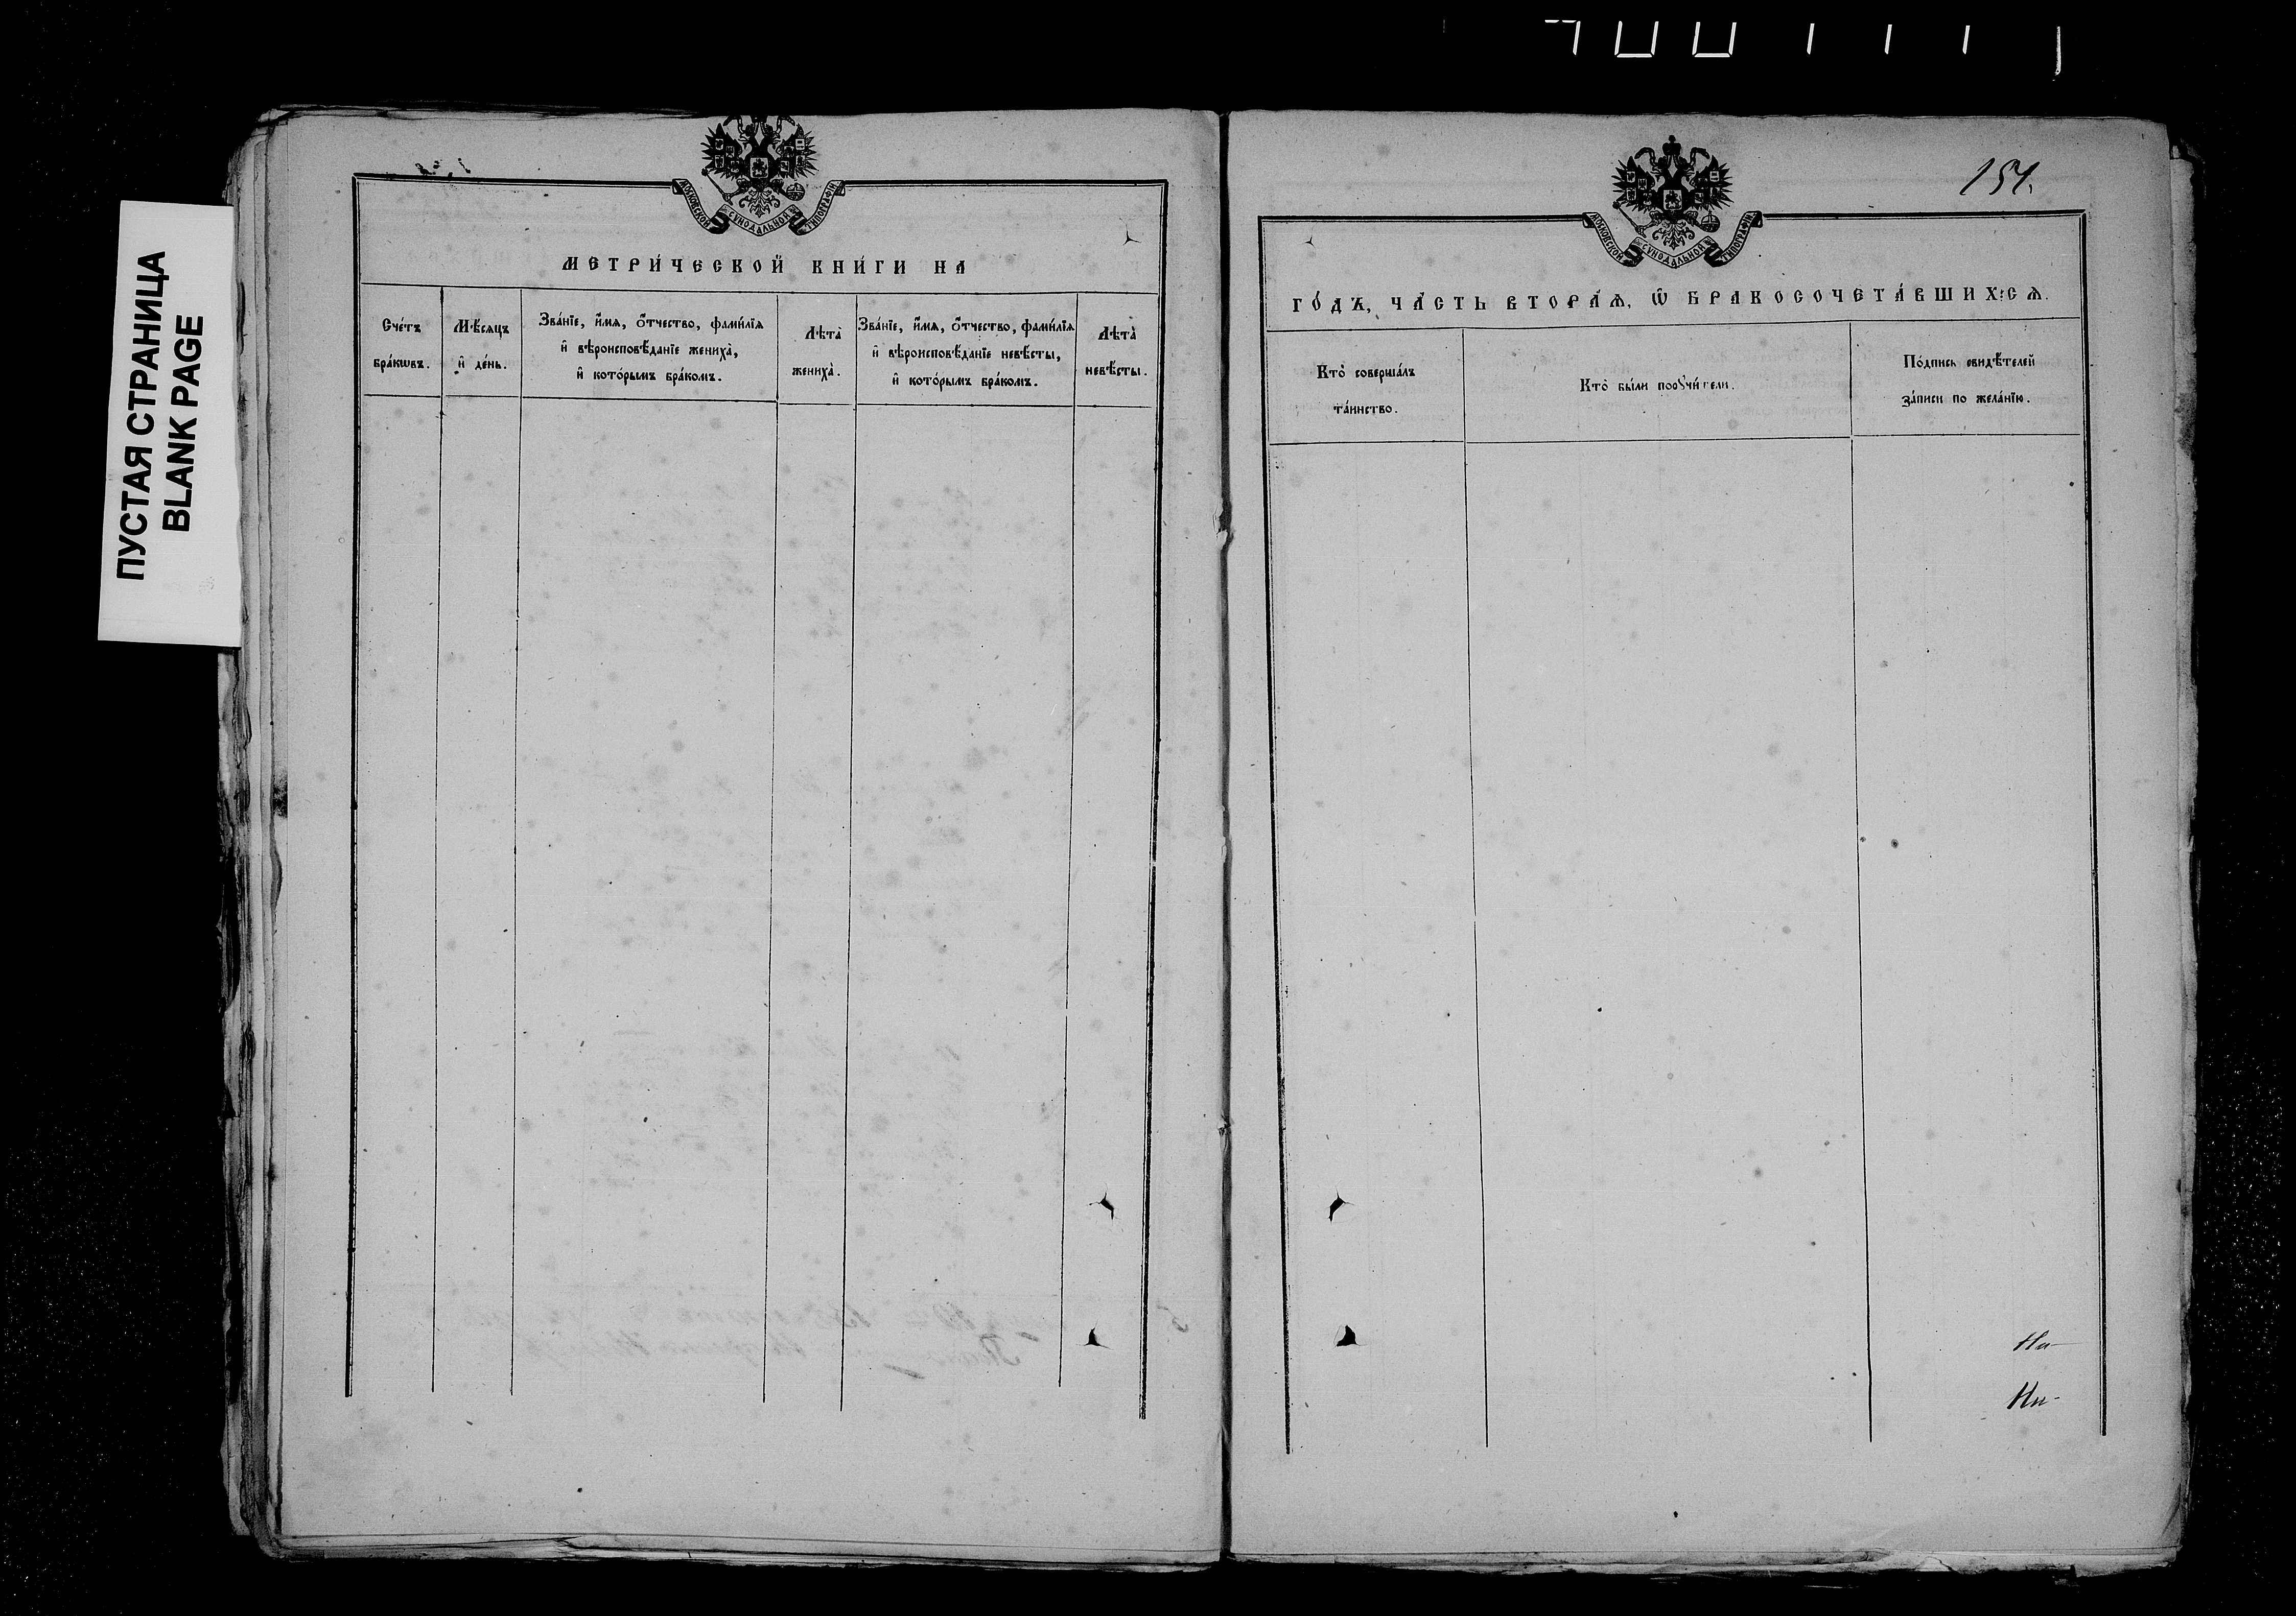 ПУСТАЯ СТРАНИЦА
BLANK PAGE
МОСКОВСКОЙ СУНОДАЛЬНОЙ ТИПОГРАФІИ
МЕТРИ́ЧЕСКОЙ КНИ́ГИ НА
Сче́тъ
бра́кѡвъ.
Мѣ́сяцъ
и҆ де́нь.
Зва́нїе, и҆́мя, ѻ҆́тчество, фами́лїя
и҆ вѣроисповѣ́данїе жениха̀,
и҆ кото́рымъ бра́комъ.
Лѣта̀
жениха̀.
Зва́нїе, и҆́мя, ѻ҆́тчество, фами́лїя
и҆ вѣроисповѣ́данїе невѣ́сты,
и҆ кото́рымъ бра́комъ.
Лѣта̀
невѣ́сты.
151.
МОСКОВСКОЙ СУНОДАЛЬНОЙ ТИПОГРАФІИ
ГО́ДЪ, ЧА́СТЬ ВТОРА́Ѧ, Ѽ БРАКОСОЧЕТА́ВШИХСѦ.
Кто̀ соверша́лъ
та́инство.
Кто̀ бы́ли порꙋчи́тели.
По́дпись свидѣ́телей
за́писи по жела́нїю.